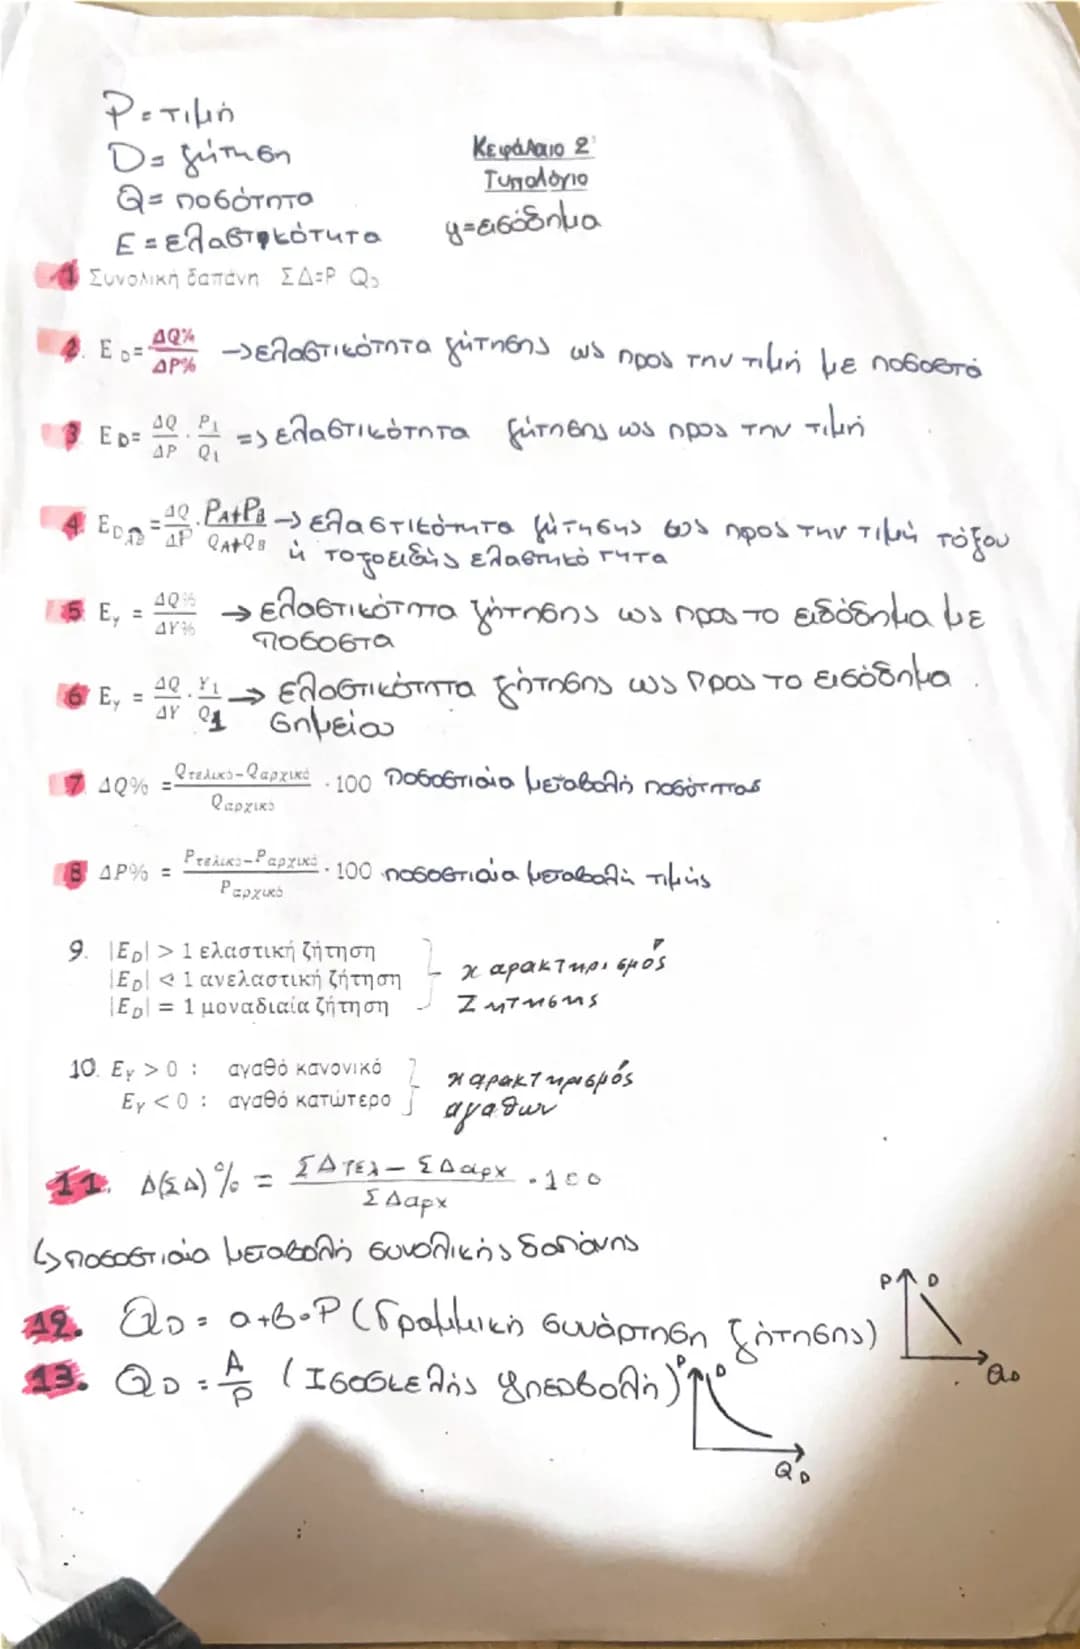 P = τιμή
D = ζήτηση
Q = ποσότητα
E = ελαστικότητα
Κεφάλαιο 2
Τυπολόγιο
y = εισόδημα
1 Συνολική δαπάνη ΣΔ=P Q_D
2. E_D = ΔQ% / ΔP% → ελαστικότητα ζήτησης ως προς την τιμή με ποσοστό
3 E_D = ΔQ/ΔP · P_1/Q_1 => ελαστικότητα ζήτησης ως προς την τιμή
4. E_D_AB = ΔQ/ΔP · P_A+P_B / Q_A+Q_B → ελαστικότητα ζήτησης ως προς την τιμή τόξου
ή τοξοειδής ελαστικότητα
5 E_y = ΔQ% / ΔY% → ελαστικότητα ζήτησης ως προς το εισόδημα με
ποσοστα
6 E_y = ΔQ/ΔY · Y_1/Q_1 → ελαστικότητα ζήτησης ως προς το εισόδημα
σημείου
7 ΔQ% = Qτελικό-Qαρχικό / Qαρχικό · 100 Ποσοστιαία μεταβολή ποσότητας
8 ΔP% = Pτελικό-Pαρχικό / Pαρχικό · 100 ποσοστιαία μεταβολή τιμής
9. |E_D| > 1 ελαστική ζήτηση
|E_D| < 1 ανελαστική ζήτηση
|E_D| = 1 μοναδιαία ζήτηση
χαρακτηρισμός
Ζήτησης
10. E_Y > 0 : αγαθό κανονικό
E_Y < 0 : αγαθό κατώτερο
χαρακτηρισμός
αγαθων
11. Δ(ΣΔ)% = ΣΔτελ - ΣΔαρχ / ΣΔαρχ · 100
↳ ποσοστιαία μεταβολή συνολικής δαπάνης
12. Q_D = α+β·P (Γραμμική συνάρτηση ζήτησης)
P D
Q_D
13. Q_D = A/P (Ισοσκελής υπερβολή)
P D
Q_D